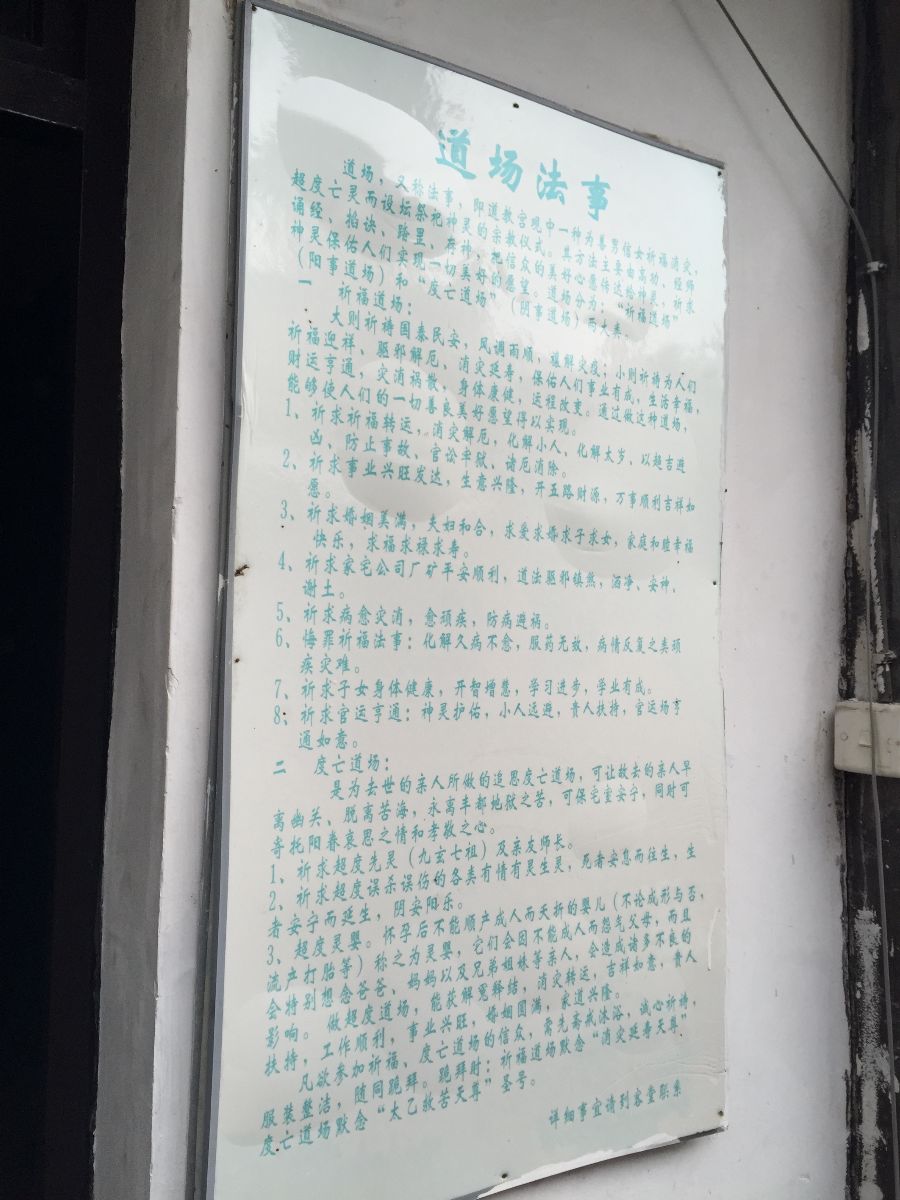 道场法事
道场，又称法事，即道教宫观中一种为善男信女祈福消灾，
超度亡灵而设坛祭祀神灵的宗教仪式。其方法主要由高功、经师
诵经、掐诀、踏罡、存神，把信众的美好心愿传达给神灵，祈求
神灵保佑人们实现一切美好的愿望。道场分为：“祈福道场”
（阳事道场）和“度亡道场”（阴事道场）两大类。
一 祈福道场：
大则祈祷国泰民安，风调雨顺，禳解灾疫；小则祈祷为人们
祈福迎祥、驱邪解厄、消灾延寿，保佑人们事业有成，生活幸福，
财运亨通，灾消祸散，身体康健，运程改变。通过做这种道场，
能够使人们的一切善良美好愿望得以实现。
1、祈求祈福转运，消灾解厄，化解小人、化解太岁，以趋吉避
凶、防止事故、官讼牢狱、诸厄消除。
2、祈求事业兴旺发达，生意兴隆，开五路财源，万事顺利吉祥如
愿。
3、祈求婚姻美满，夫妇和合，求爱求婚求子求女，家庭和睦幸福
快乐，求福求禄求寿。
4、祈求家宅公司厂矿平安顺利，道法驱邪镇煞，洒净、安神、
谢土。
5、祈求病愈灾消，愈顽疾，防病避祸。
6、悔罪祈福法事：化解久病不愈，服药无效，病情反复之类顽
疾灾难。
7、祈求子女身体健康，开智增慧，学习进步，学业有成。
8、祈求官运亨通：神灵护佑，小人远避，贵人扶持，官运场亨
通如意。
二 度亡道场：
是为去世的亲人所做的追思度亡道场，可让故去的亲人早
离幽关、脱离苦海，永离丰都地狱之苦，可保宅室安宁，同时可
寄托阳眷哀思之情和孝敬之心。
1、祈求超度先灵（九玄七祖）及亲友师长。
2、祈求超度误杀误伤的各类有情有灵生灵，死者安息而往生，生
者安宁而延生，阴安阳乐。
3、超度灵婴。怀孕后不能顺产成人而夭折的婴儿（不论成形与否，
流产打胎等）称之为灵婴，它们会因不能成人而怨气父母，而且
会特别想念爸爸、妈妈以及兄弟姐妹等亲人，会造成诸多不良的
影响。做超度道场，能获解冤释结，消灾转运，吉祥如意，贵人
扶持，工作顺利，事业兴旺，婚姻圆满，家道兴隆。
凡欲参加祈福、度亡道场的信众，需先斋戒沐浴，诚心祈祷，
服装整洁，随同跪拜。跪拜时：祈福道场默念“消灾延寿天尊”
度亡道场默念“太乙救苦天尊”圣号。
详细事宜请到客堂联系